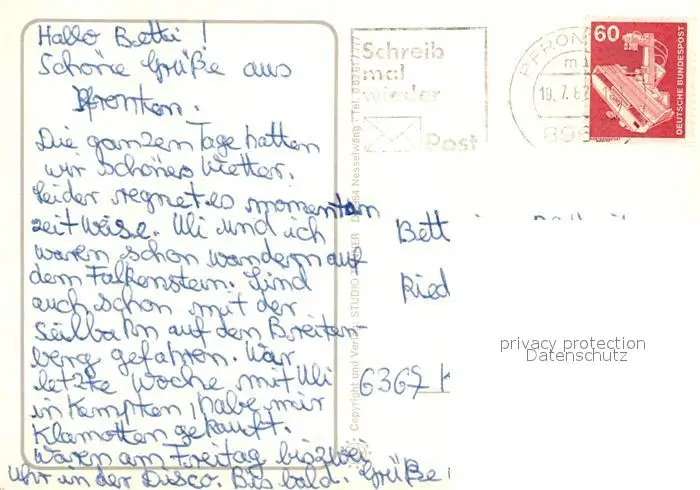 Hallo Betti !
Schöne Grüße aus
Pfronten.
Die ganzen Tage hatten
wir schönes Wetter.
Leider regnet es momentan
zeitweise. Uli und ich
waren schon wandern auf
dem Falkenstein. Sind
auch schon mit der
Seilbahn auf den Breiten-
berg gefahren. War
letzte Woche mit Uli
in Kempten, habe mir
Klamotten gekauft.
Waren am Freitag bis zwei
Uhr in der Disco. Bis bald. Grüße
Copyright und Verlag: STUDIO Nesselwang
Schreib
mal
wieder
Post
PFRON
19.7.82
896
60
DEUTSCHE BUNDESPOST
Bett
Ried
6367 K
privacy protection
Datenschutz